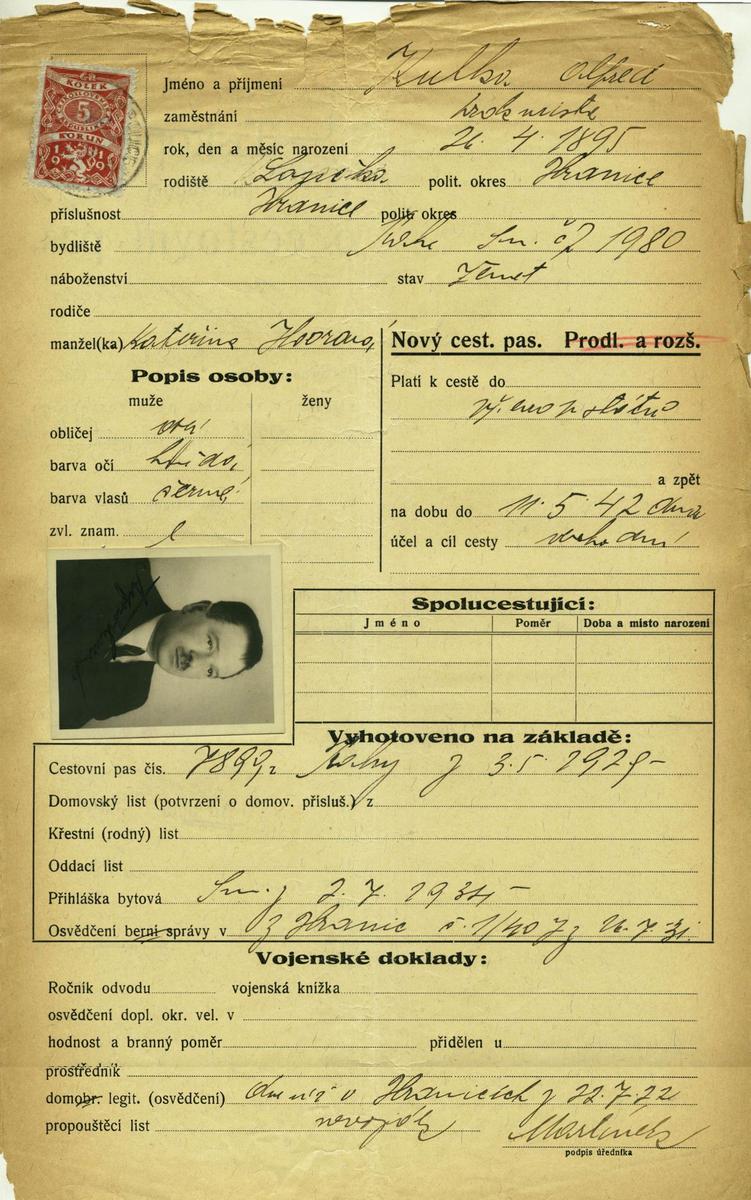 KOLEK
5
KORUN
1919
Jméno a příjmení Kulka Alfred
zaměstnání
rok, den a měsíc narození 26. 4. 1895
rodiště polit. okres Hranice
příslušnost Hranice polit. okres
bydliště Sm. čp 1980
náboženství stav ženat
rodiče
manžel(ka) Kateřina
Nový cest. pas. Prodl. a rozš.
Popis osoby:
muže ženy
obličej
barva očí hnědá
barva vlasů černá
zvl. znam.
Platí k cestě do
a zpět
na dobu do 11. 5. 42
účel a cíl cesty obchodní
Spolucestující:
Jméno Poměr Doba a místo narození
Vyhotoveno na základě:
Cestovní pas čís. 7899 z 3. 5. 1929
Domovský list (potvrzení o domov. přísluš.) z
Křestní (rodný) list
Oddací list
Přihláška bytová Sm. z 2. 7. 1934
Osvědčení berní správy v z Hranic č. 1/40 z 26. 7. 31.
Vojenské doklady:
Ročník odvodu vojenská knížka
osvědčení dopl. okr. vel. v
hodnost a branný poměr přidělen u
prostředník
domobr. legit. (osvědčení) v Hranicích z 22. 7. 22
propouštěcí list
podpis úředníka